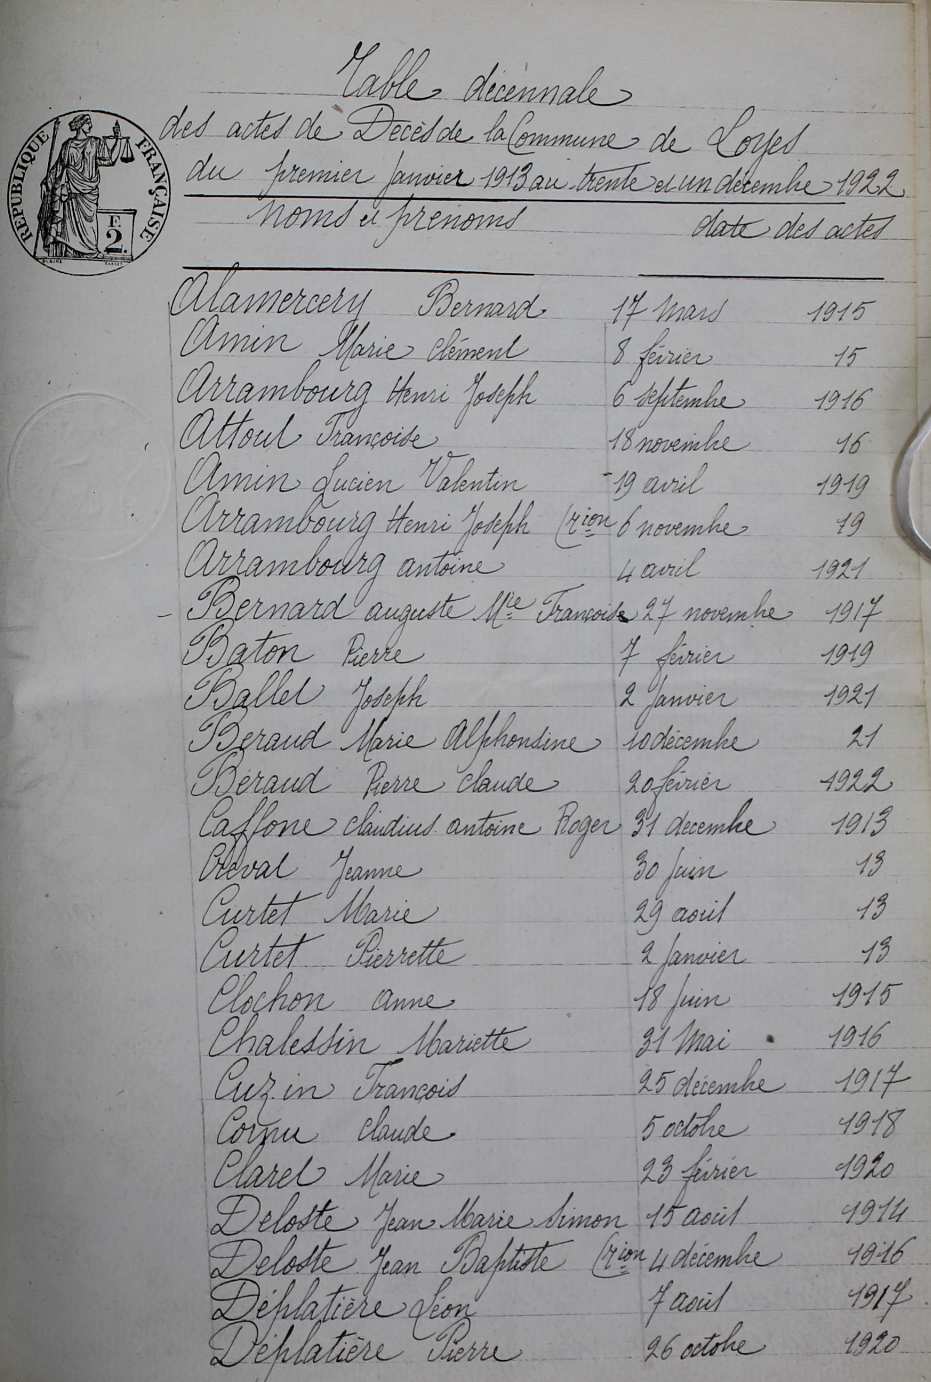 Table décennale
des actes de Décès de la Commune de Loyes
du premier Janvier 1913 au trente et un décembre 1922
RÉPUBLIQUE FRANÇAISE
F.
2.
Noms et prénoms date des actes
Alamercery Bernard 17 Mars 1915
Amin Marie Clément 8 février 15
Arrambourg Henri Joseph 6 septembre 1916
Attout Françoise 18 novembre 16
Amin Lucien Valentin 19 avril 1919
Arrambourg Henri Joseph (Tion 6 novembre 19
Arrambourg antoine 4 avril 1921
Bernard auguste Mie Françoise 27 novembre 1917
Baton Pierre 7 février 1919
Ballet Joseph 2 Janvier 1921
Beraud Marie Alphonsine 10 décembre 21
Béraud Pierre Claude 20 février 1922
Caffone Claudius antoine Roger 31 décembre 1913
Créval Jeanne 30 Juin 13
Curtet Marie 29 août 13
Curtet Pierrette 2 Janvier 13
Clochon Anne 18 Juin 1915
Chalessin Mariette 31 Mai 1916
Cuzin François 25 décembre 1917
Cornu Claude 5 octobre 1918
Claret Marie 23 février 1920
Deloste Jean Marie Simon 15 août 1914
Deloste Jean Baptiste (Tion 4 décembre 1916
Déplatière Léon 7 août 1917
Déplatière Pierre 26 octobre 1920